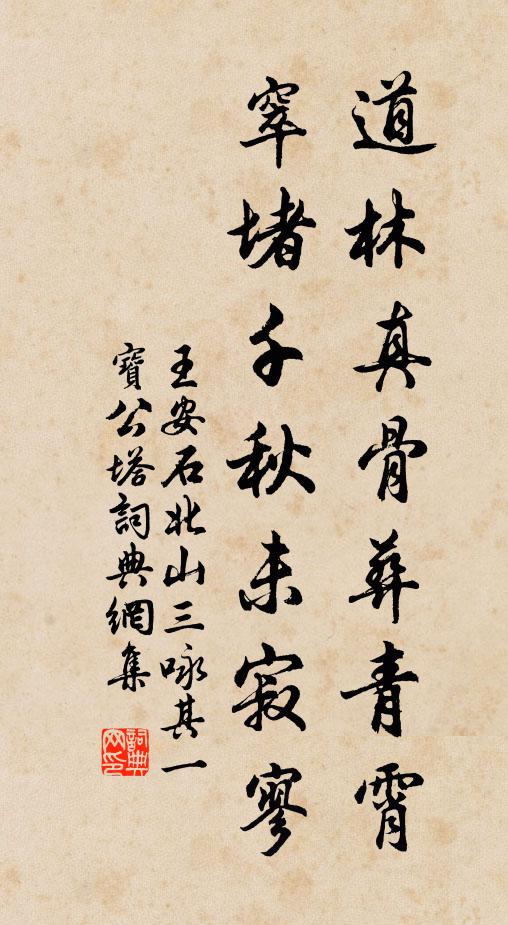 道林真骨葬青霄
窣堵千秋未寂寥
王安石北山三咏其一
寶公塔詞典網集
詞典網印